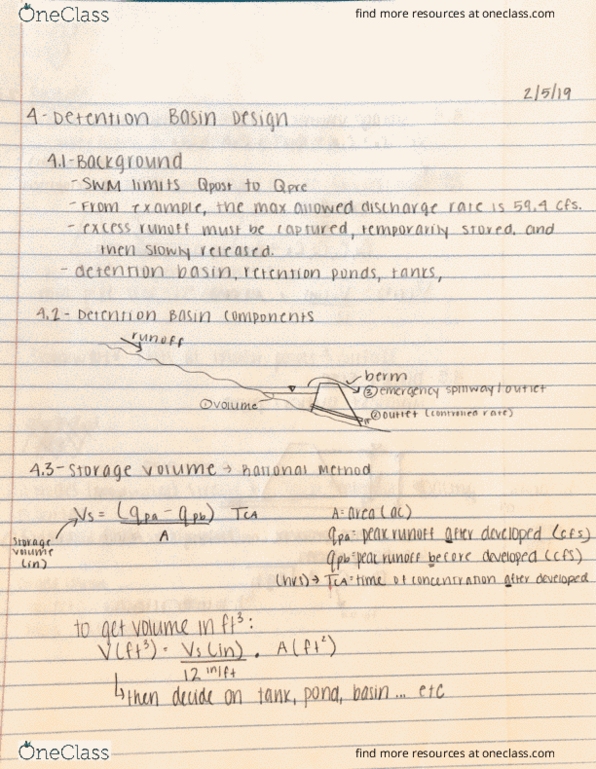 OneClass
find more resources at oneclass.com
2/5/19
4-Detention Basin Design
4.1-Background
-SWM limits Qpost to Qpre
-From example, the max allowed discharge rate is 59.4 cfs.
-excess runoff must be captured, temporarily stored, and
then slowly released.
-detention basin, retention ponds, tanks,
4.2-Detention Basin components
runoff
berm
③emergency spillway/outlet
①volume
②outlet (controlled rate)
4.3-Storage volume → Rational Method
Vs = (qpa - qpb) TCA
A
A=area (ac)
storage
volume
(in)
qpa=peak runoff after developed (cfs)
qpb=peak runoff before developed (cfs)
(hrs)→ TCA=time of concentration after developed
to get volume in ft³:
V(ft³)= Vs(in) . A(ft²)
12 in/ft
↳then decide on tank, pond, basin... etc
OneClass
find more resources at oneclass.com